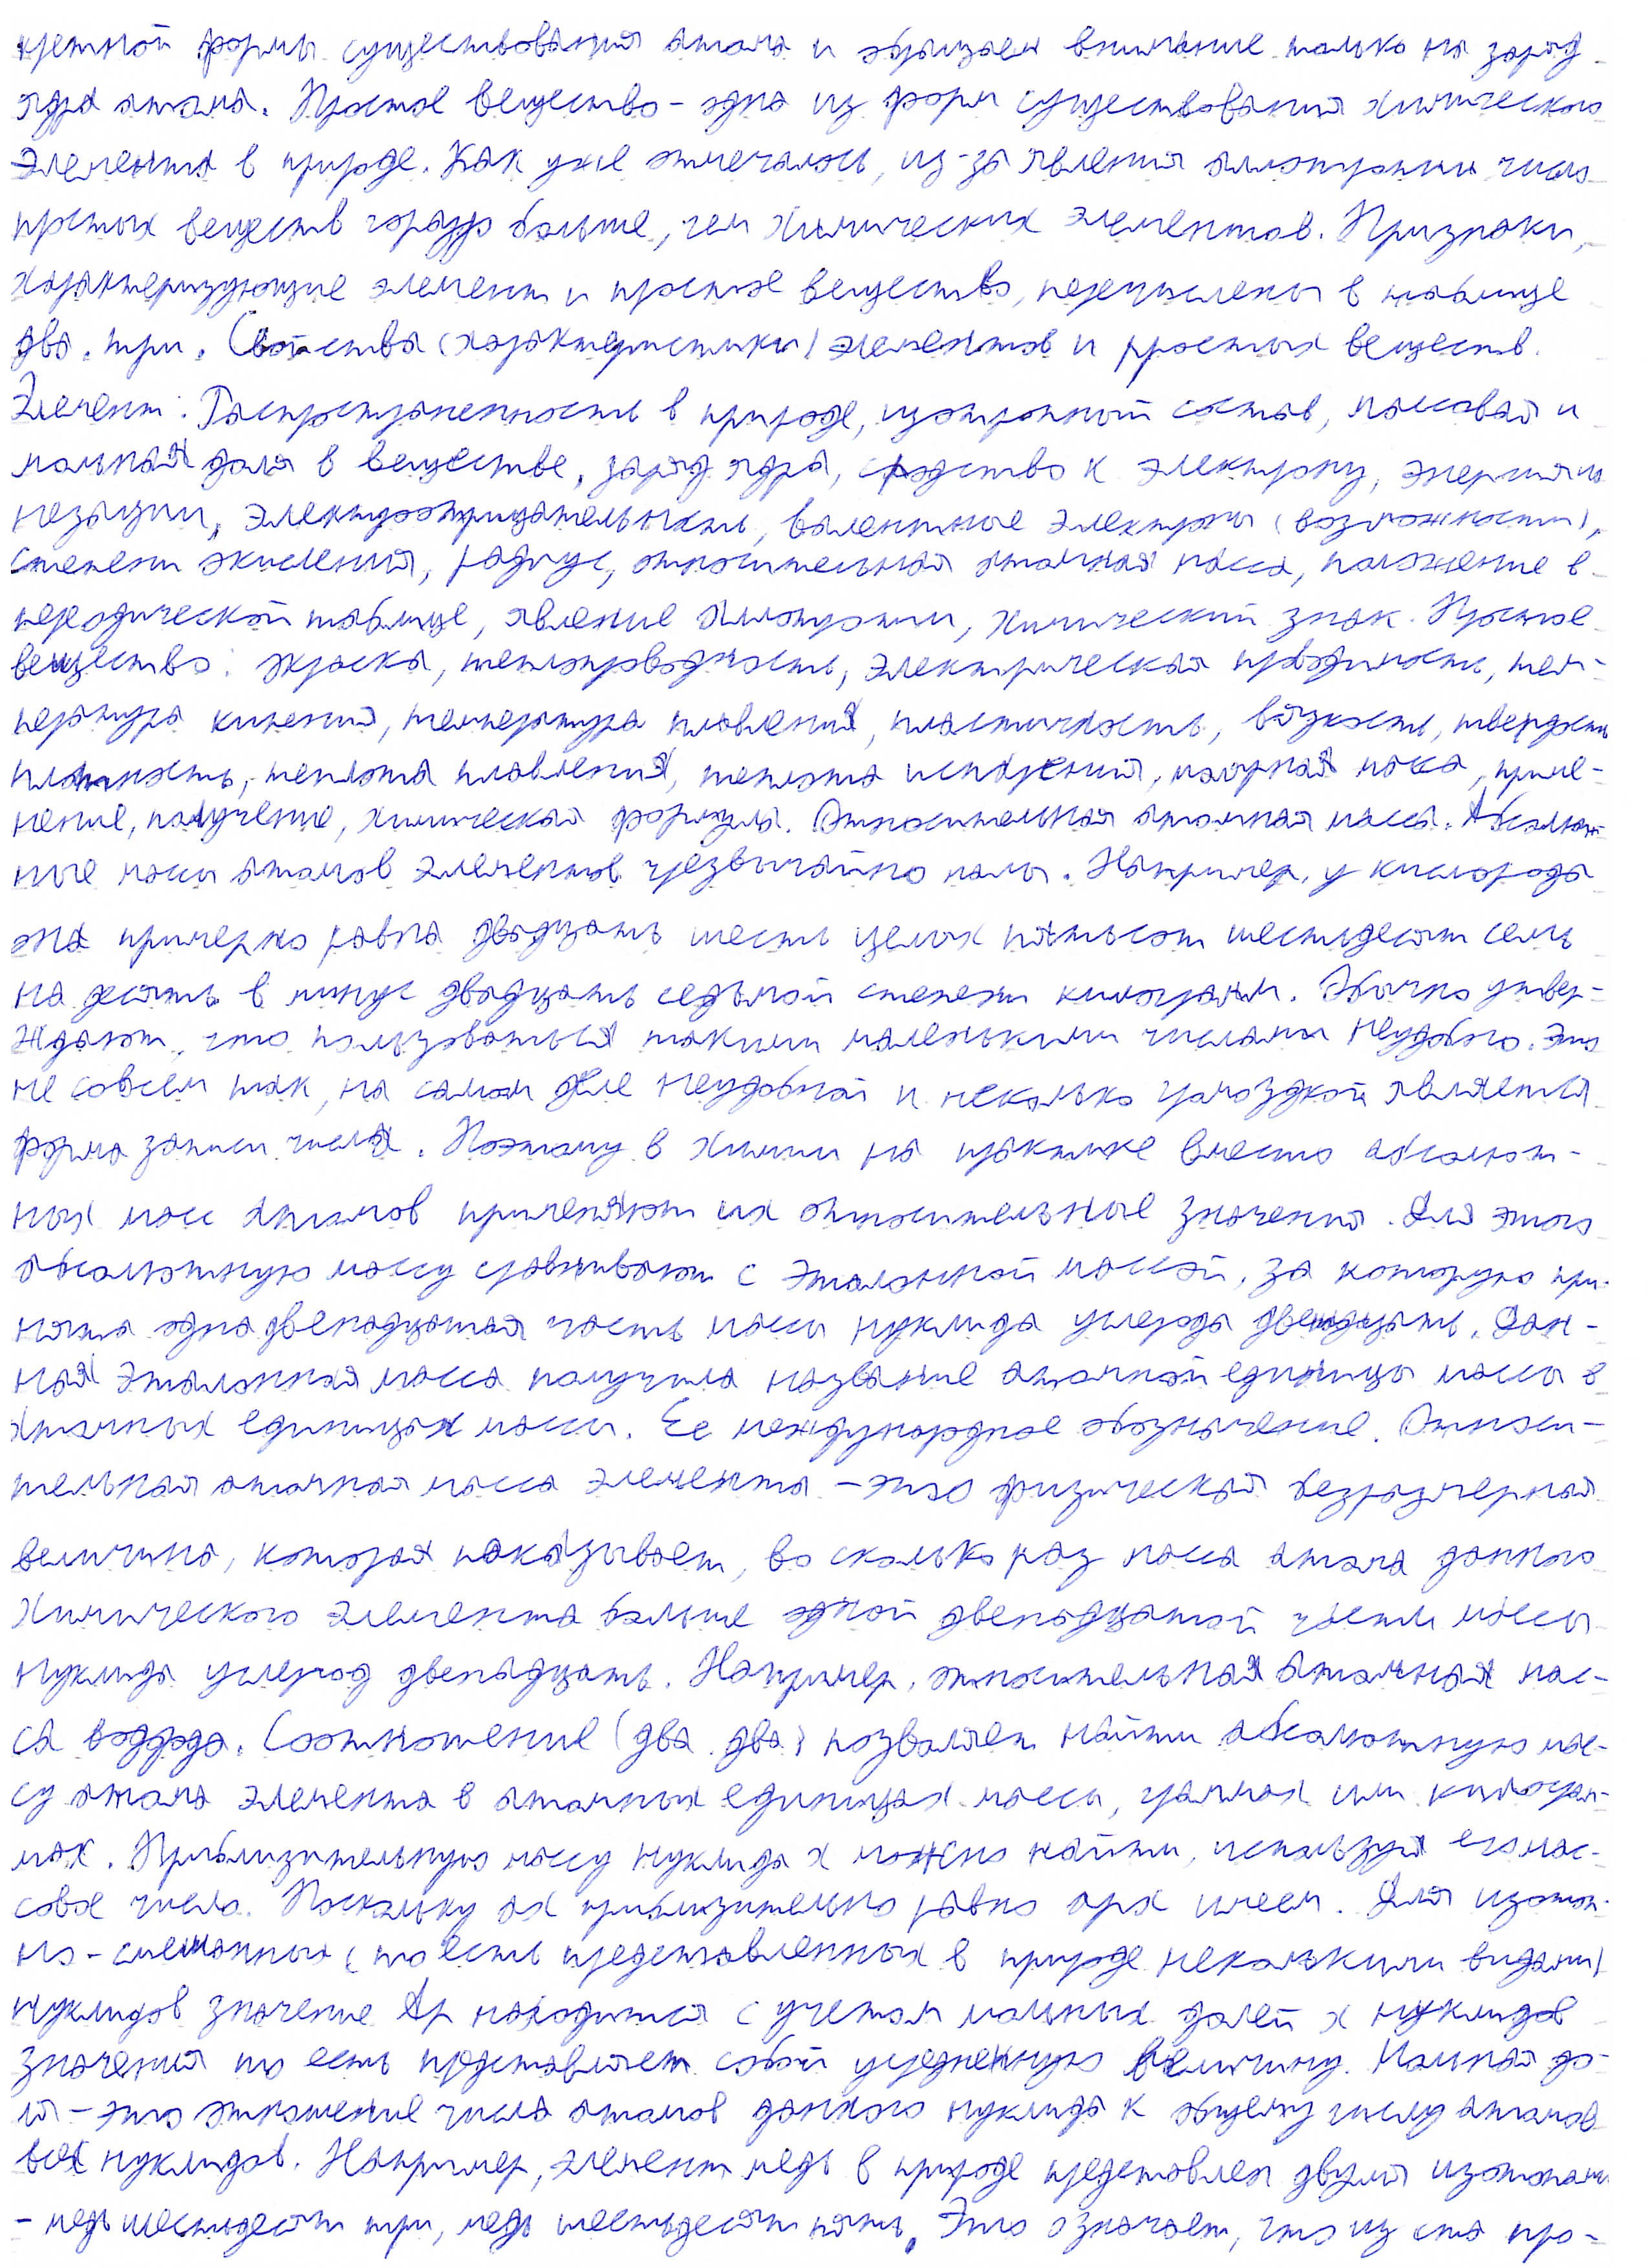 кретной формы существования атома и обращаем внимание только на заряд
ядра атома. Простое вещество - одна из форм существования химического
элемента в природе. Как уже отмечалось, из-за явления аллотропии число
простых веществ гораздо больше, чем химических элементов. Признаки,
характеризующие элемент и простое вещество, перечислены в таблице
два. три. Свойства (характеристики) элементов и простых веществ.
Элемент: Распространенность в природе, изотопный состав, массовая и
мольная доля в веществе, заряд ядра, сродство к электрону, энергия ио
низации, электроотрицательность, валентные электроны (возможности),
степени окисления, радиус, относительная атомная масса, положение в
периодической таблице, явление аллотропии, химический знак. Простое
вещество: окраска, теплопроводность, электрическая проводимость, тем-
пература кипения, температура плавления, пластичность, вязкость, твердость
плотность, теплота плавления, теплота испарения, молярная масса, приме-
нение, получение, химическая формула. Относительная атомная масса. Абсолют-
ные массы атомов элементов чрезвычайно малы. Например, у кислорода
она примерно равна двадцать шесть целых пятьсот шестьдесят семь
на десять в минус двадцать седьмой степени килограмм. Обычно утвер-
ждают, что пользоваться такими маленькими числами неудобно. Это
не совсем так, на самом деле неудобной и несколько громоздкой является
форма записи числа. Поэтому в химии на практике вместо абсолют-
ных масс атомов применяют их относительные значения. Для этого
абсолютную массу сравнивают с эталонной массой, за которую при-
нята одна двенадцатая часть массы нуклида углерода двенадцать. Дан-
ная эталонная масса получила название атомной единицы массы в
атомных единицах массы. Ее международное обозначение. Относи-
тельная атомная масса элемента - это физическая безразмерная
величина, которая показывает, во сколько раз масса атома данного
химического элемента больше одной двенадцатой части массы
нуклида углерод двенадцать. Например, относительная атомная мас-
са водорода. Соотношение (два. два) позволяет найти абсолютную мас-
су атома элемента в атомных единицах массы, граммах или килограм-
мах. Приблизительную массу нуклида х можно найти, используя его мас-
совое число. Поскольку ах приблизительно равно арх имеем. Для изотоп-
но-смешанных (то есть представленных в природе несколькими видами)
нуклидов значение Ар находится с учетом мольных долей х нуклидов
значения то есть представляет собой усредненную величину. Мольная до-
ля - это отношение числа атомов данного нуклида к общему числу атомов
всех нуклидов. Например, элемент медь в природе представлен двумя изотопами
- медь шестьдесят три, медь шестьдесят пять. Это означает, что из ста про-